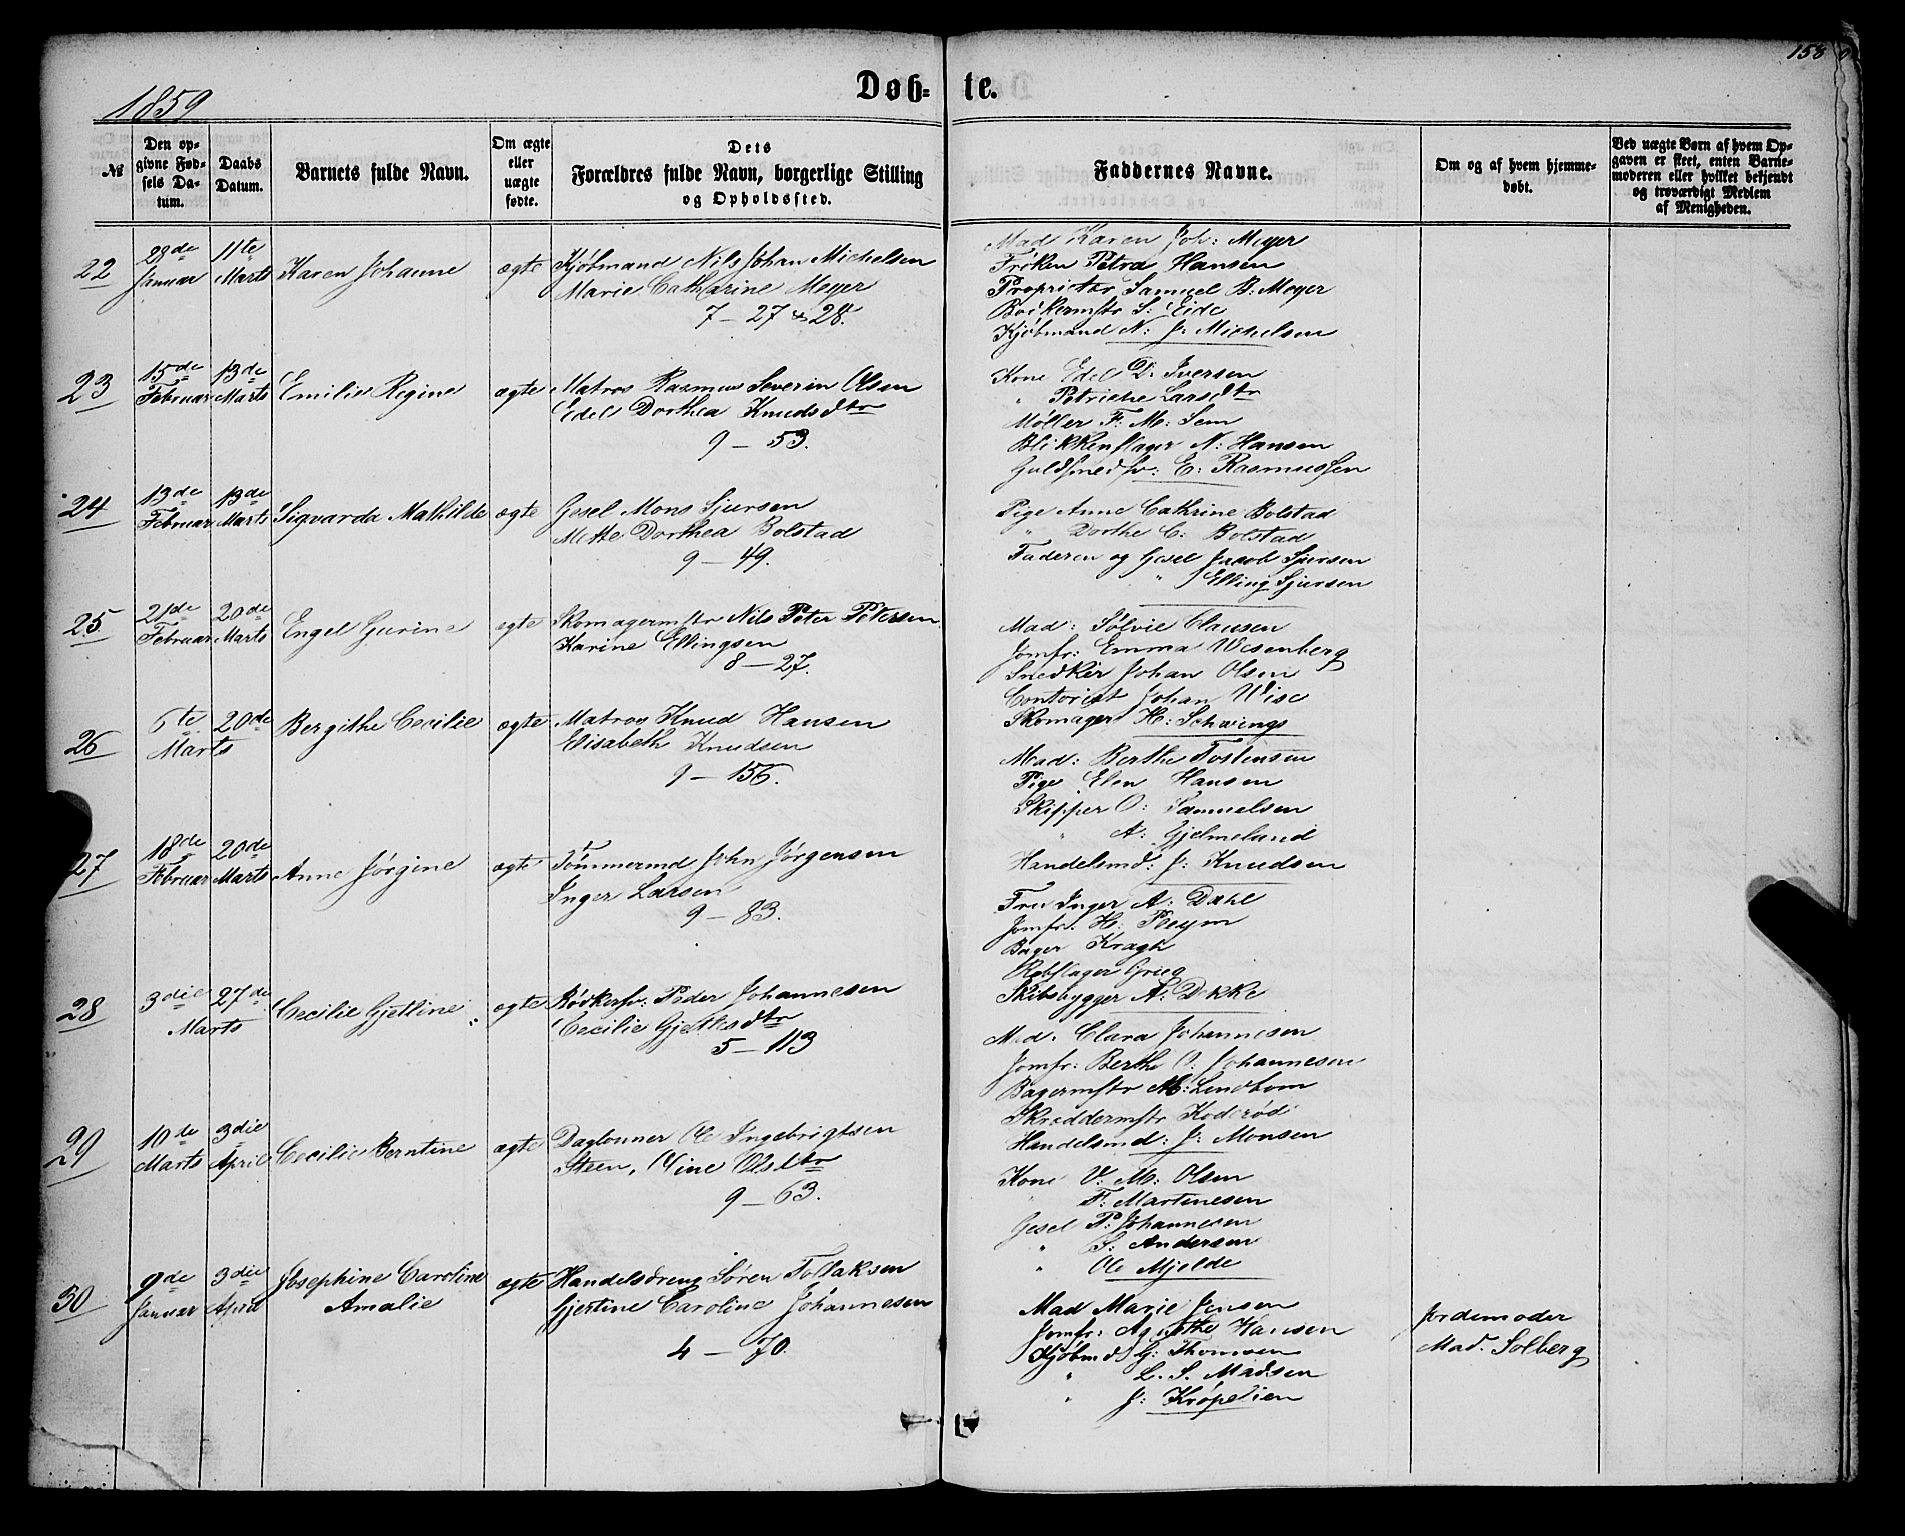 158
1859
Døb- te.
№
Den opgivne Fødsels Datum.
Daabs Datum.
Barnets fulde Navn.
Om ægte eller uægte fødte.
Dets Forældres fulde Navn, borgerlige Stilling og Opholdssted.
Faddernes Navne.
Om og af hvem hjemmedøbt.
Ved uægte Børn af hvem Opgaven er skeet, enten Barnemoderen eller hvilket bekjendt og troværdigt Medlem af Menigheden.
22
Januar
11te Marts
Karen Johanne
ægte
Kjøbmand Nils Johan Michelsen
Marie Cathrine Meyer
7 – 27 & 28.
Mad Karen Joh: Meyer
Frøken Petra Hansen
Proprietær Samuel B: Meyer
S: Eide
Kjøbmand N: J: Michelsen
23
15de Februar
13de Marts
Emilie Regine
ægte
Matros Rasmus Severin Olsen
Edel Dorthea Knudsdtr
9 – 53.
Kone Edel D: Iversen
" Petriche Larsdtr
Møller F: M: Sem
Blikkenslager N: Hansen
Guldsmedsv: E: Rasmussen
24
13de Februar
13de Marts
Sigvarda Mathilde
ægte
Gesel Mons Sjursen
Mette Dorthea Bolstad
9 – 49.
Pige Anne Cathrine Bolstad
" Dorthe C: Bolstad
Faderen og Gesel Jacob Sjursen
" Elling Sjursen
25
21de Februar
20de Marts
Engel Gurine
ægte
Skomagermstr Nils Peter Petersen
Karine Ellingsen
8 – 27.
Mad: Sølvie Clausen
Jomfr: Emma Wesenberg
Snedker Johan Olsen
Contorist Johan Wise
Skomager H: Schwings
26
20de
Marts
Bergithe Cecilie
ægte
Matros Knud Hansen
Elisabeth Knudsen
9 – 156.
Mad: Berthe Tostensen
Pige Elen Hansen
Skipper O: Samuelsen
" A: Gjelmelund
Handelsmd: J: Knudsen
27
18de Februar
20de Marts
Anne Jørgine
ægte
Tømmermd John Jørgensen
Inger Larsen
9 – 83.
Fru Inger A: Dahl
Jomfr: H:
Bager Kragh
Rebslager Grieg
Skibsbygger A: Dekke
28
3die 27de
Marts
Cecilie Gjertine
ægte
Bødkersv: Peder Johannesen
Cecilie Gjertsdtr
5 – 113
Mad. Clara Johannesen
Jomfr: Berthe O: Johannesen
Bagermstr M: Lindbom
Skreddermstr Koderød
Handelsmd: J: Monsen
29
10de Marts
3die April
Cecilie Berntine
ægte
Daglønner Ole Ingebrigtsen
Steen, Oline Olsdtr
9 – 63.
Kone V: M: Olsen
" F: Martinesen
Gesel P: Johannesen
" S: Andersen
" Ole Mjelde
30
9de Januar
3die April
Josephine Caroline
Amalie
ægte
Handelsdreng Søren Tollaksen
Gjertine Caroline Johannesen
4 – 70.
Mad Marie Jensen
Jomfr: Agnethe Hansen
Kjøbmd G: Thomsen
" L. S. Madsen
" J: Krøpelien
Jordemoder
Mad. Solberg